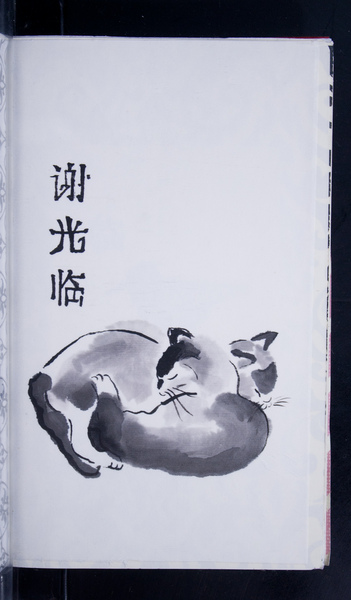 谢光临